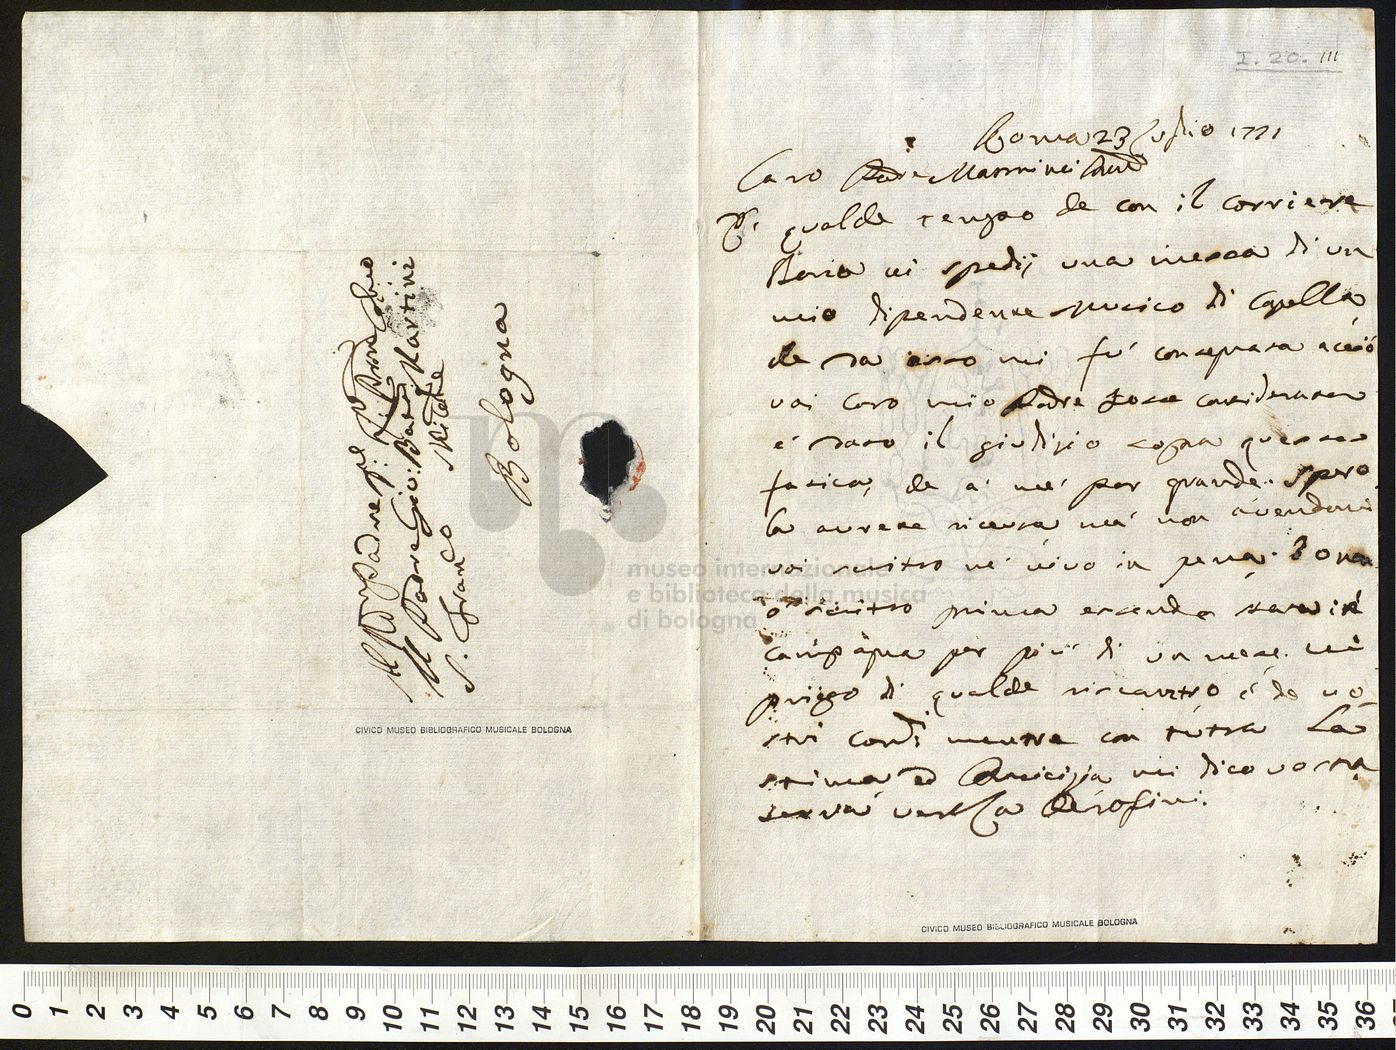 I. 20. 111
Roma 23 Luglio 1771
Caro Padre Martini
qualche tempo che con il corriere
vi spedij una messa di un
mio dipendente musico di Capella
che da esso mi fu consegnata acciò
voi caro mio Padre considerata
e dato il giudizio sopra questa
fatica, che ai me par grande. Spero
la avrete ricevuta ma non avendomi
voi scritto ne vivo in pena.
ò scritto prima essendo stata in
campagna per più di un mese. mi
priego di qualche riscontro e de vo
stri comdi mentre con tutta La
stima ed Amicizia mi dico vostra
serva
Al Padre
Il Padre Gio: Batt Martini
S. Franco
Bologna
CIVICO MUSEO BIBLIOGRAFICO MUSICALE BOLOGNA
CIVICO MUSEO BIBLIOGRAFICO MUSICALE BOLOGNA
museo internazionale
e biblioteca della musica
di bologna
0 1 2 3 4 5 6 7 8 9 10 11 12 13 14 15 16 17 18 19 20 21 22 23 24 25 26 27 28 29 30 31 32 33 34 35 36